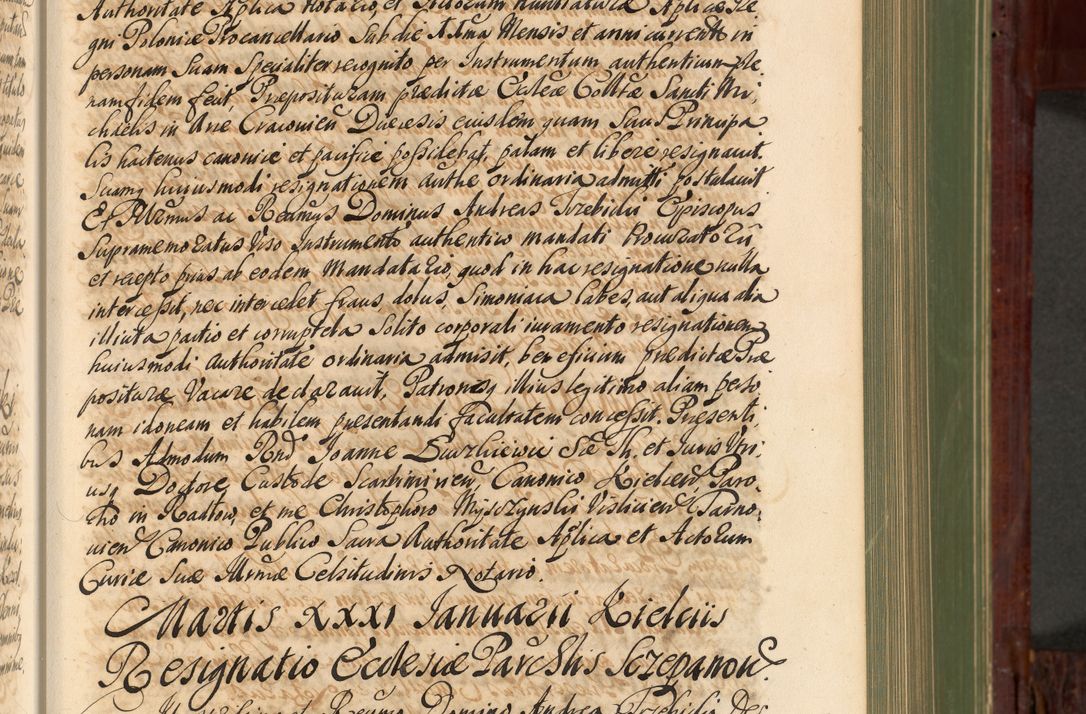 Authoritate Aplica Notario, et Actorum Nuntiaturæ Aplicæ Re
gni Poloniæ Procancellario Sub die Mensis et anni currentis in
personam Suam Specialiter recognito per Instrumentum authenticum ple
nam fidem fecit, Præposituram prædictæ Ecclæ Colltæ Sancti Mi,
chaelis in Arce Cracovien Diæcesis eiusdem quam Suus Principa
lis hactenus canonicè et pacificè possidebat, palam et liberè resignavit.
Suamq huiusmodi resignationem authe ordinaria admitti postulavit
Et Illrmus ac Rendmus Dominus Andreas Trzebicki Episcopus
Supramemoratus Viso Instrumento authentico Mandati Procuratorii
et recepto prius ab eodem Mandatario, quod in hac resignatione nulla
intercessit, nec intercedet fraus dolus, Simoniaca labes, aut aliqua alia
illicita pactio et corruptela Solito corporali iuramento resignationem
huiusmodi Authoritate ordinaria admisit, beneficium prædictæ Præ
posituræ Vacare declaravit, Patronoq illius legitimo aliam perso
nam idoneam et habilem præsentandi facultatem concessit. Præsenti,
bus Admodum Rnd Joanne Sæ Th. et Juris Utri
usq Doctore, Custode Canonico Kielcien Paro,
cho in Radłow, et me Christophoro Myszczynski Vislicien Tarno,
vien Canonico Publico Sacra Authoritate Aplica et Actorum
Curiæ Suæ Illrmæ Celsitudinis Notario.
Martis XXXI Januarii Kielciis
Resignatio Ecclesiæ Parchlis Szczepanow.
Andrea Trzebicki Dei